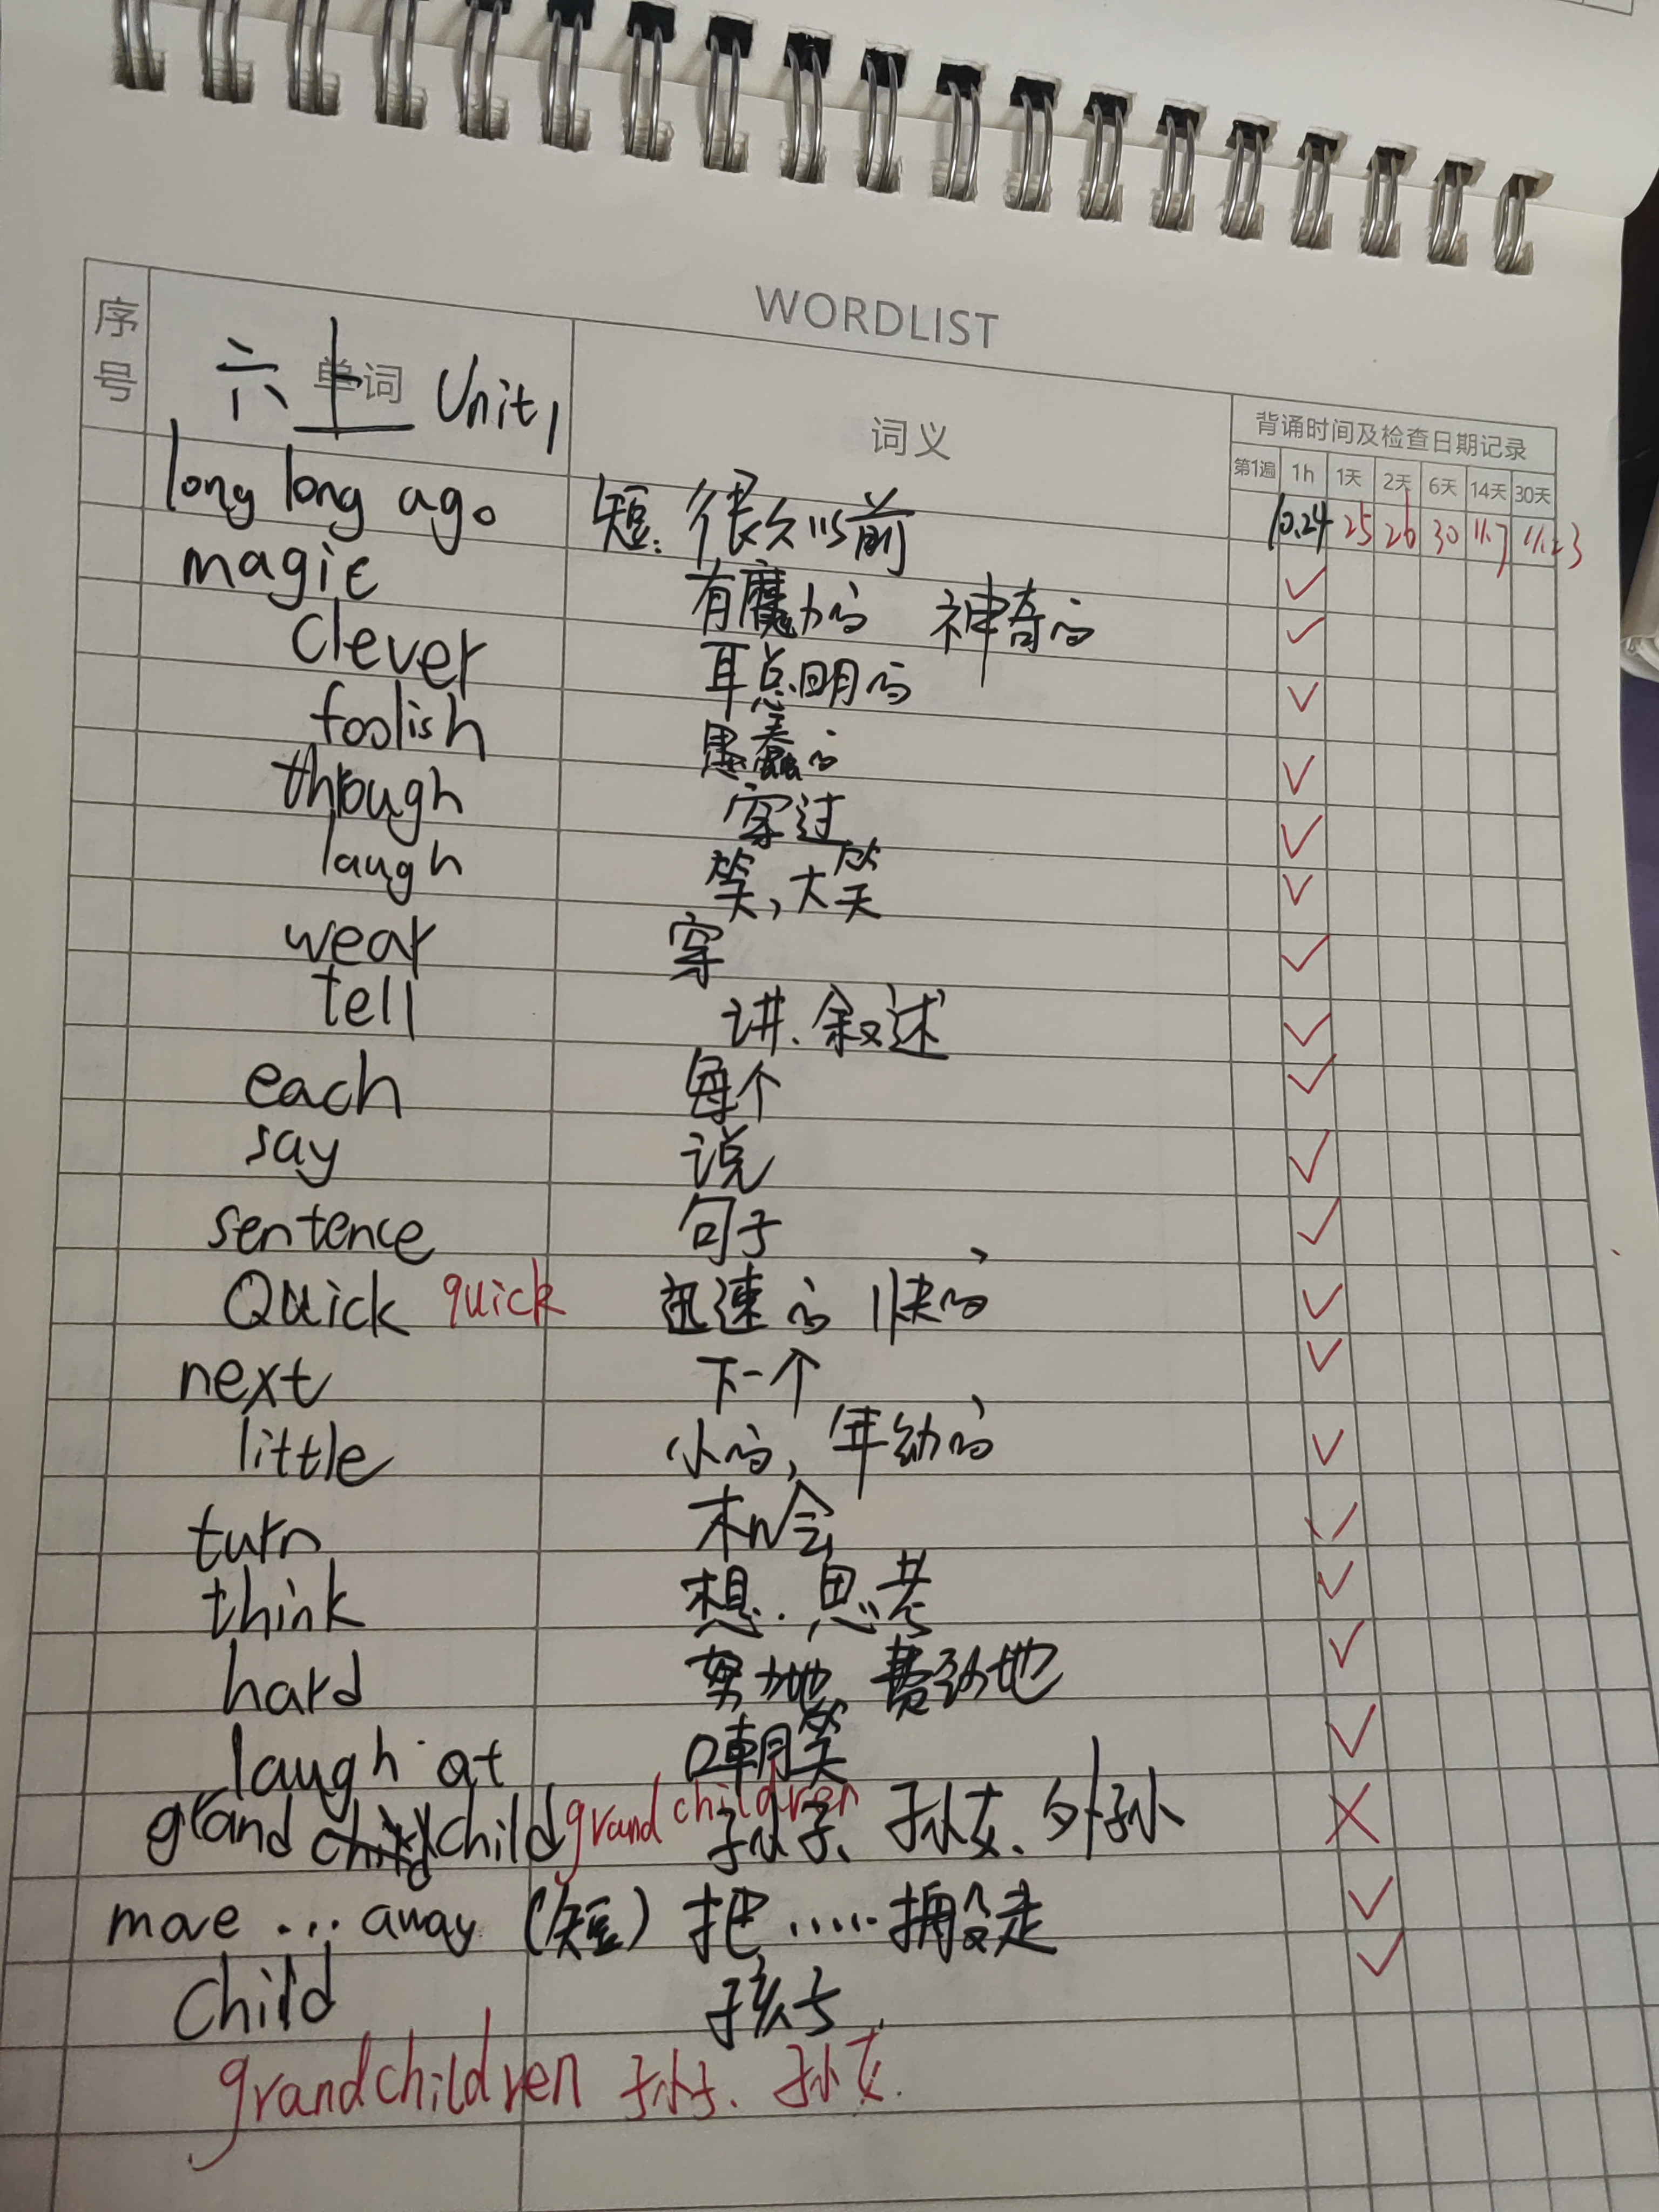 WORDLIST
序号 单词 词义 背诵时间及检查日期记录
六上 Unit1
第1遍 1h 1天 2天 6天 14天 30天
10.24 25 26 30 11.7 11.23
long long ago 短. 很久以前
magic 有魔力的 神奇的
clever 聪明的
foolish 愚蠢的
through 穿过
laugh 笑, 大笑
wear 穿
tell 讲、叙述
each 每个
say 说
sentence 句子
Quick quick 迅速的、快的
next 下一个
little 小的, 年幼的
turn 机会
think 想、思考
hard 努力地 费劲地
laugh at 嘲笑
grand child grandchildren 孙子、孙女、外孙
move ... away (短) 把......搬走
child 孩子
grandchildren 孙子、孙女.